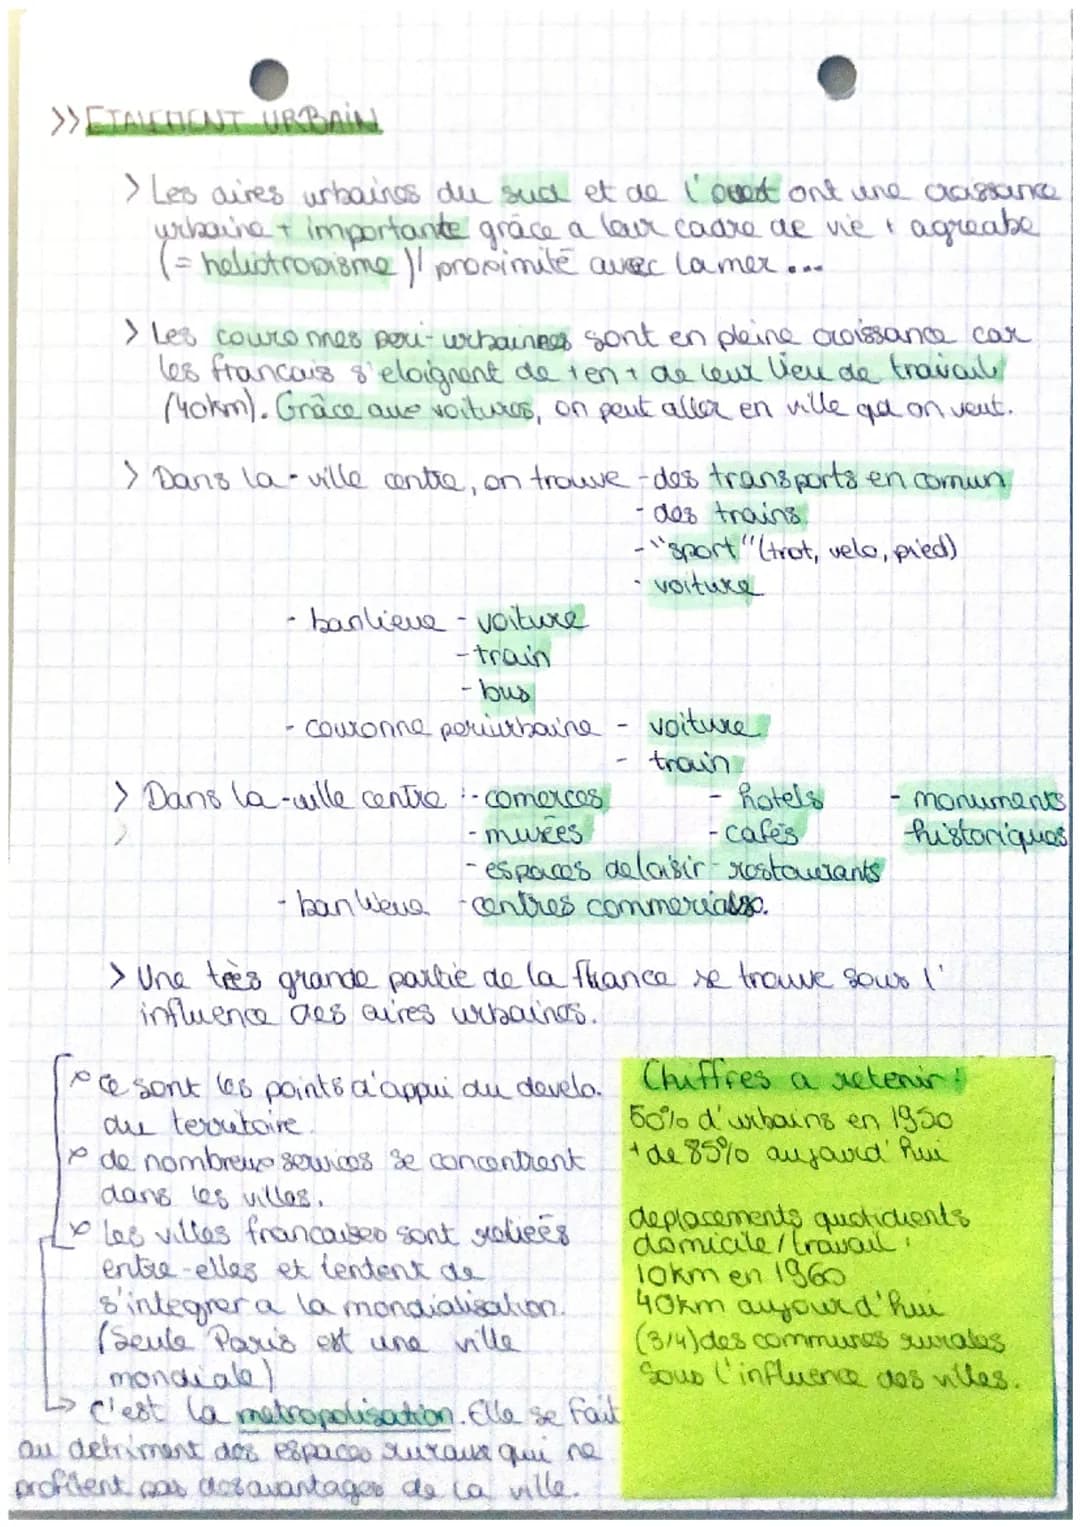 >> ETALEMENT URBAIN
> Les aires urbaines du sud et de l'ouest ont une croissance
urbaine + importante grâce a leur cadre de vie + agreabe
(= heliotropisme)/ proximité avec la mer ...
> Les couronnes peri-urbaines sont en pleine croissance car
les francais s'eloignent de + en + de leur lieu de travail
(40km). Grâce aux voitures, on peut aller en ville qd on veut.
> Dans la - ville centre, on trouve - des transports en comun
- des trains
- "sport" (trot, velo, pied)
- voiture
- banlieue - voiture
- train
- bus
- couronne periurbaine - voiture
- train
> Dans la - ville centre : - comerces - hotels - monuments
- musées - cafés historiques
- espaces de loisir - restaurants
- banlieue - centres commerciaux.
> Une très grande partie de la france se trouve sous l'
influence des aires urbaines.
ce sont les points d'appui du develo.
du territoire.
de nombreux services se concentrent
dans les villes.
les villes francaises sont reliées
entre-elles et tentent de
s'integrer a la mondialisation.
(Seule Paris est une ville
mondiale)
-> c'est la metropolisation. Elle se fait
au detriment des espaces ruraux qui ne
profitent pas des avantages de la ville.
Chiffres a retenir :
50% d'urbains en 1950
+ de 85% aujourd'hui
deplacements quotidients
domicile / travail :
10km en 1960
40km aujourd'hui
(3/4) des communes rurales
sous l'influence des villes.